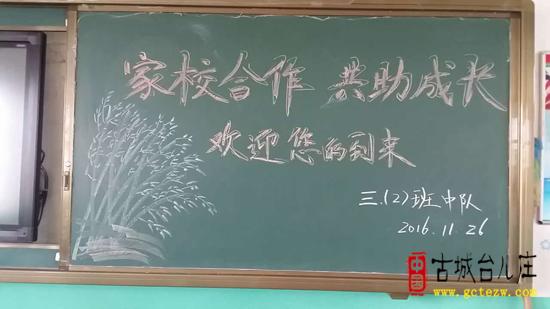 家校合作 共助成长
欢迎您的到来
三.(2)班中队
2016.11.26
中国 古城台儿庄
www.gctezw.com